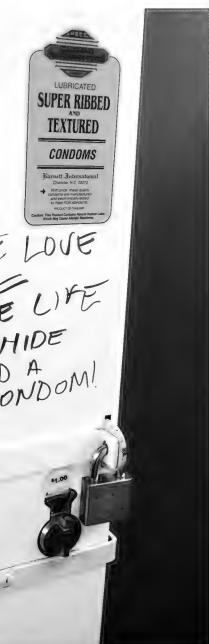 LUBRICATED
SUPER RIBBED
AND
TEXTURED
CONDOMS
Barnett International
Charlotte, N.C. 28273
E LOVE
E LIFE
HIDE
D A
ONDOM!
$1.00